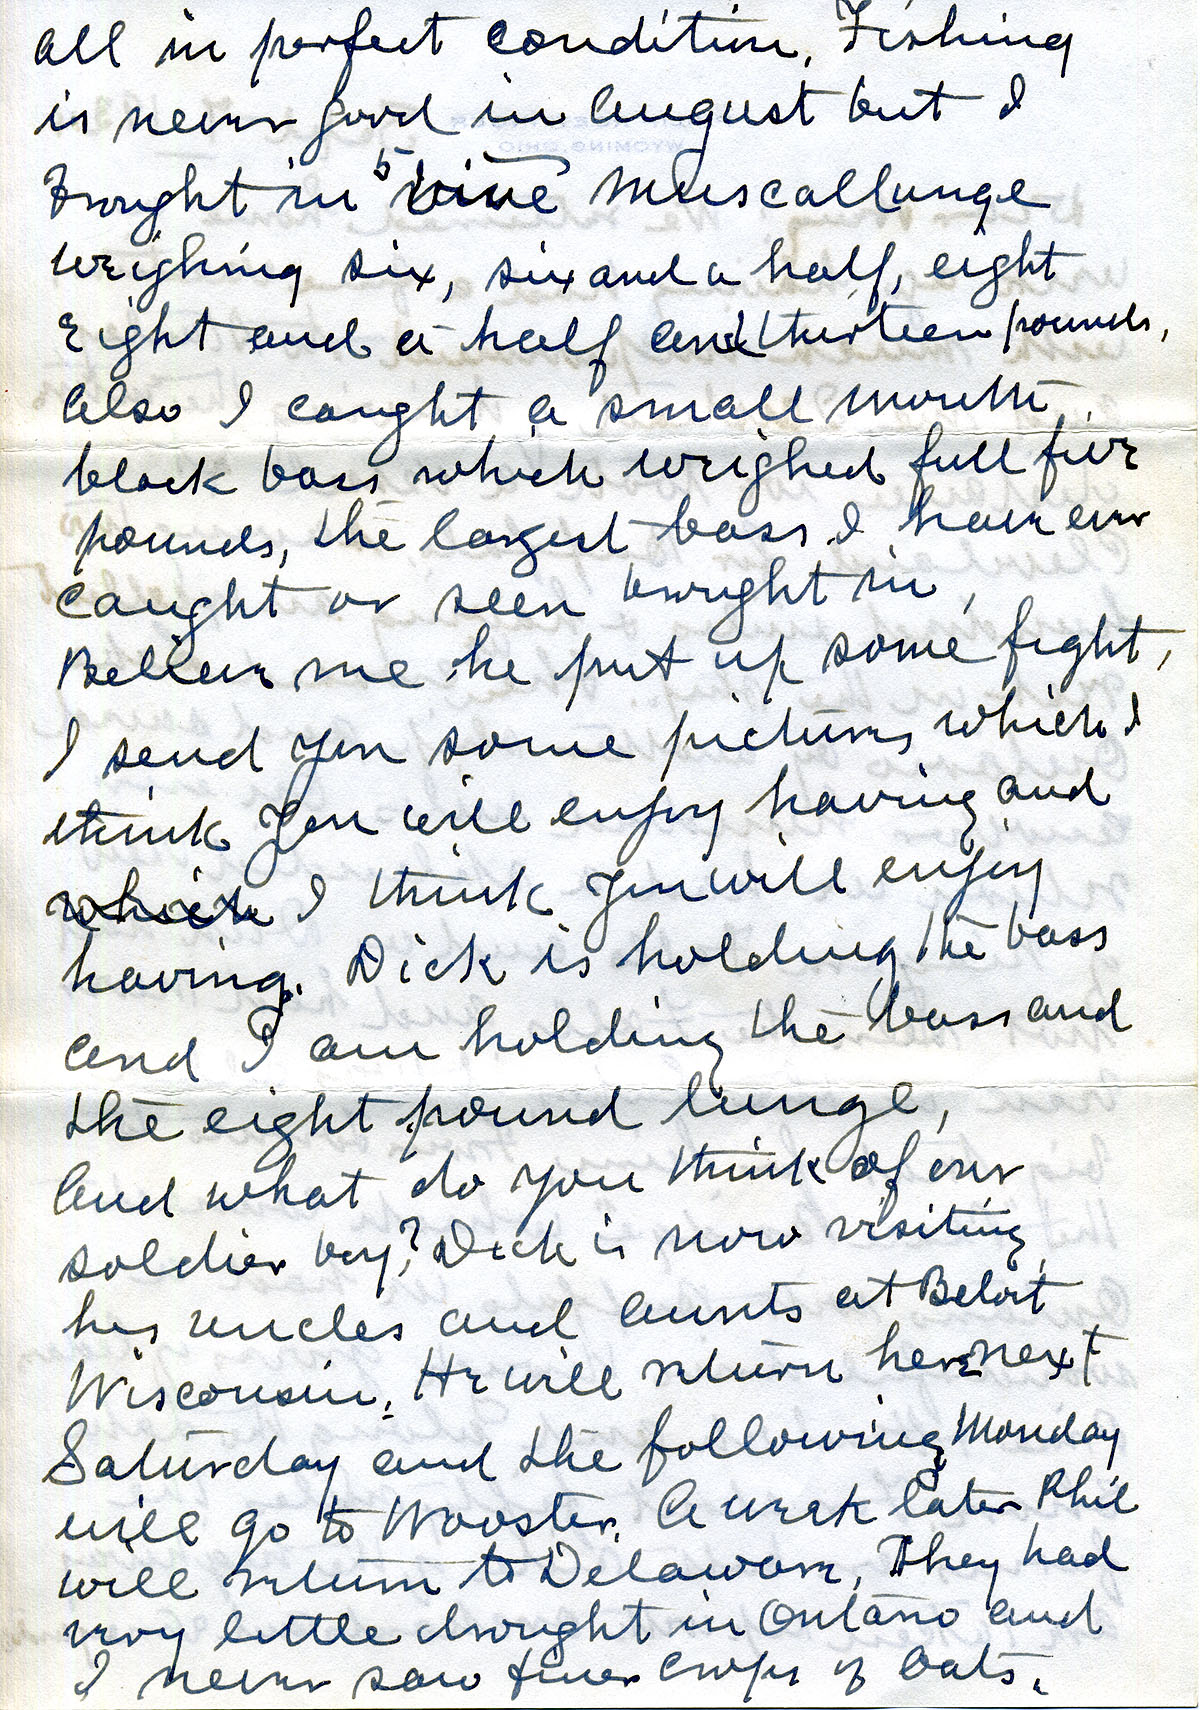 all in perfect condition. Fishing
is never good in August but I
brought in 5 Muscallunge
weighing six, six and a half, eight
eight and a half and thirteen pounds,
Also I caught a small mouth
black bass which weighed full five
pounds, the largest bass I have ever
caught or seen brought in,
Believe me he put up some fight,
I send you some pictures which I
think you will enjoy having and
which I think you will enjoy
having. Dick is holding the bass
and I am holding the bass and
the eight pound lunge,
And what do you think of our
soldier boy? Dick is now visiting
his uncles and aunts at Beloit
Wisconsin. He will return here next
Saturday and the following Monday
will go to Wooster. A week later Phil
will return to Delaware. They had
very little drought in Ontario and
I never saw finer crops of oats.